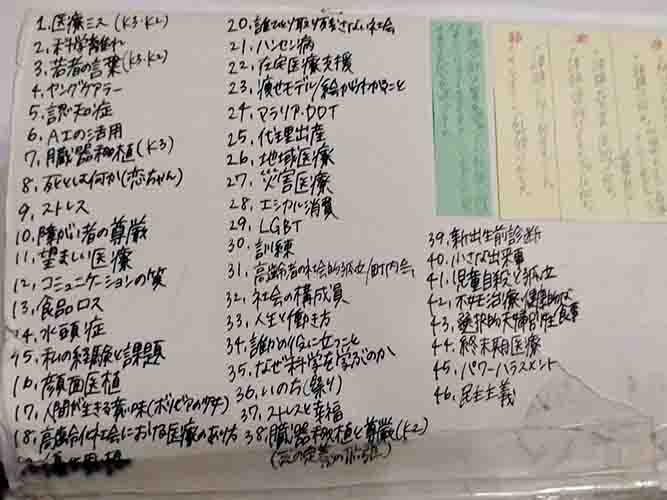 1. 医療ミス (K3·K2)
2. 科学離れ
3. 若者の言葉(K3·K2)
4. ヤングケアラー
5. 認知症
6. AIの活用
7. 臓器移植(K3)
8. 死とは何か(恋ちゃん)
9. ストレス
10. 障がい者の尊厳
11. 望ましい医療
12. コミュニケーションの質
13. 食品ロス
14. 水頭症
15. 私の経験と課題
16. 顔面医植
17. 人間が生きる意味(ボリビアの少女)
18. 高齢化社会における医療のあり方
20. 誰ひとり取り残さない社会
21. ハンセン病
22. 在宅医療支援
23. 痩せモデル/絵からわかること
24. マラリア·DDT
25. 代理出産
26. 地域医療
27. 災害医療
28. エシカル消費
29. LGBT
30. 訓練
31. 高齢者の社会的孤立/町内会
32. 社会の構成員
33. 人生と働き方
34. 誰かの役に立つこと
35. なぜ科学を学ぶのか
36. いのち(祭り)
37. ストレスと幸福
38. 臓器移植と尊厳(K2)
39. 新出生前診断
40. 小さな出来事
41. 児童自殺と孤立
42. 不妊治療/健康的な食事
43. 選択的夫婦別姓
44. 終末期医療
45. パワーハラスメント
46. 民主主義